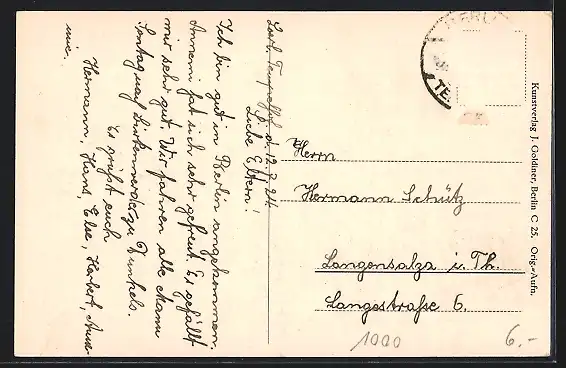 Tempelhof, d. 12.7.24
Liebe Eltern!
Ich bin gut in Berlin angekommen.
Annemi hat sich sehr gefreut. Es gefällt
mir sehr gut. Wir fahren alle Mann
Sontag nach Birkenwerder zu Dunkels.
Es grüßt euch
Hermann, Hans, Else, Herbert, Anne-
mie.
BERLIN
TE
Herrn
Hermann Schütz
Langensalza i. Th.
Langestraße 6.
Kunstverlag J. Goldiner, Berlin C 25. Orig.-Aufn.
1000
6.-